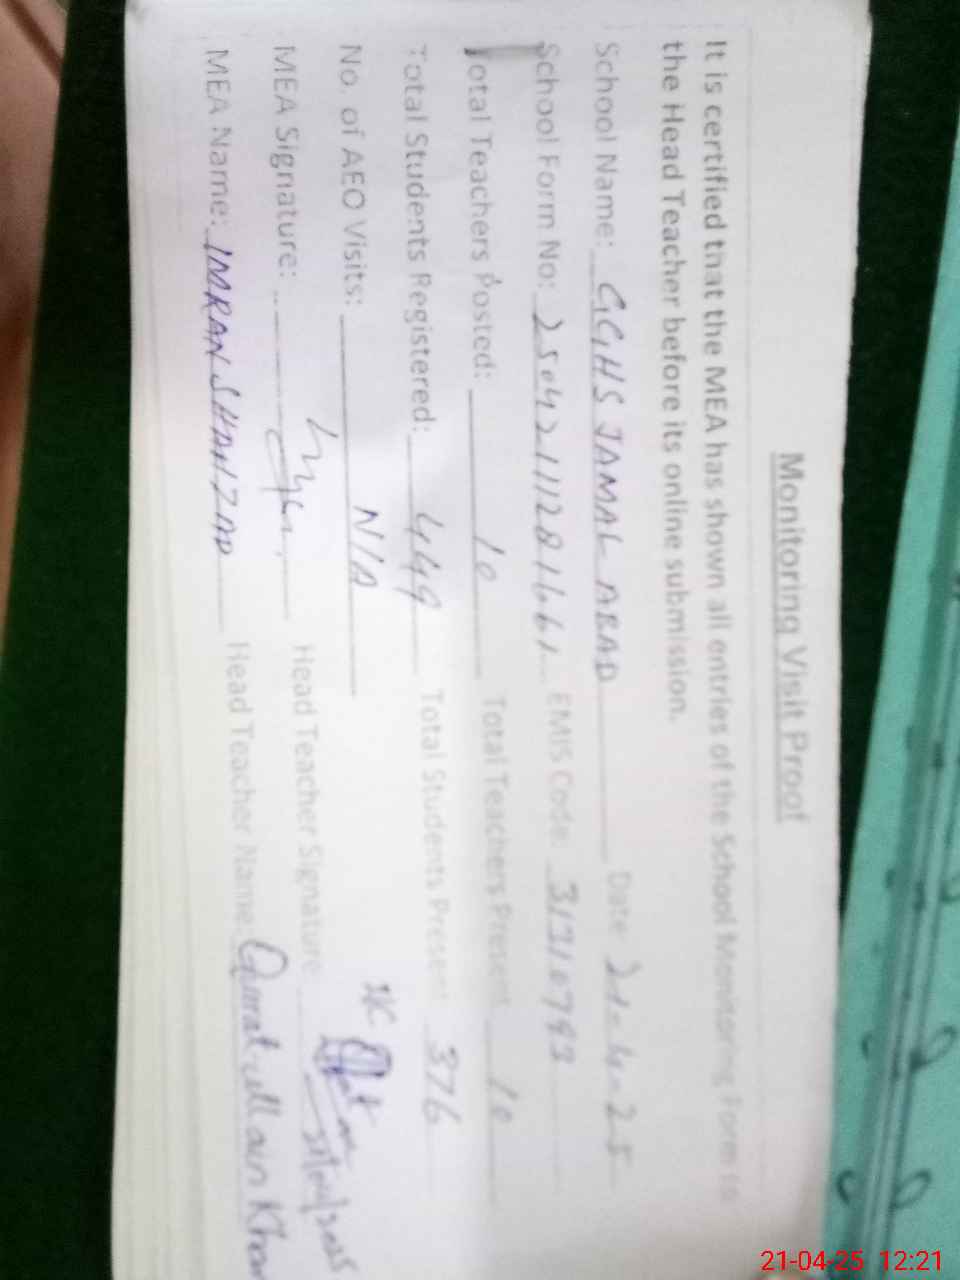 Monitoring Visit Proof
It is certified that the MEA has shown all entries of the School Monitoring Form to
the Head Teacher before its online submission.
School Name: GGHS JAMAL ABAD Date 21-4-25
School Form No: 25042111281661 EMIS Code: 31310793
Total Teachers Posted: 10 Total Teachers Present 10
Total Students Registered: 449 Total Students Present 376
No. of AEO Visits: N/A
MEA Signature: Head Teacher Signature
MEA Name: IMRAN SHAHZAD Head Teacher Name: Qurat-ull-ain Khan
21-04-25 12:21